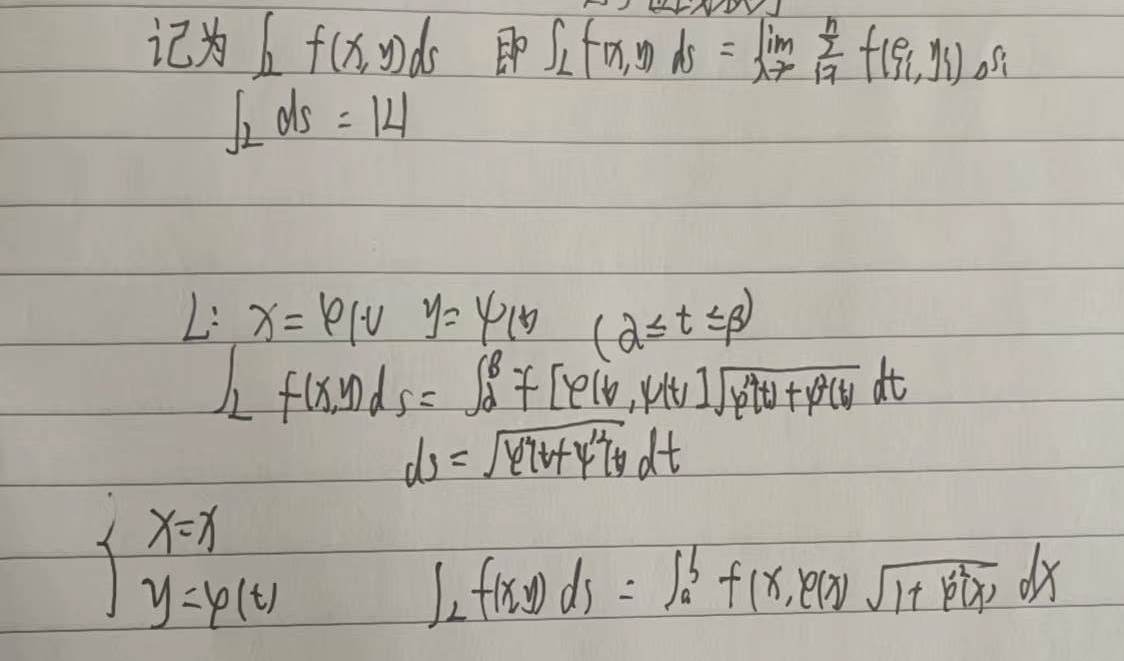 记为 ∫_L f(x,y)ds 即 ∫_L f(x,y) ds = lim_{λ→} Σ_{i=1}^{n} f(ξ_i, y_i) △s_i
∫_L ds = |L|
L: x = φ(t) y = ψ(t) (α ≤ t ≤ β)
∫_L f(x,y) ds = ∫_α^β f[φ(t), ψ(t)] √(φ'²(t) + ψ'²(t)) dt
ds = √(φ'²(t) + ψ'²(t)) dt
{ x = x
y = φ(t) ∫_L f(x,y) ds = ∫_a^b f(x, φ(x) √(1 + φ'²(x)) dx